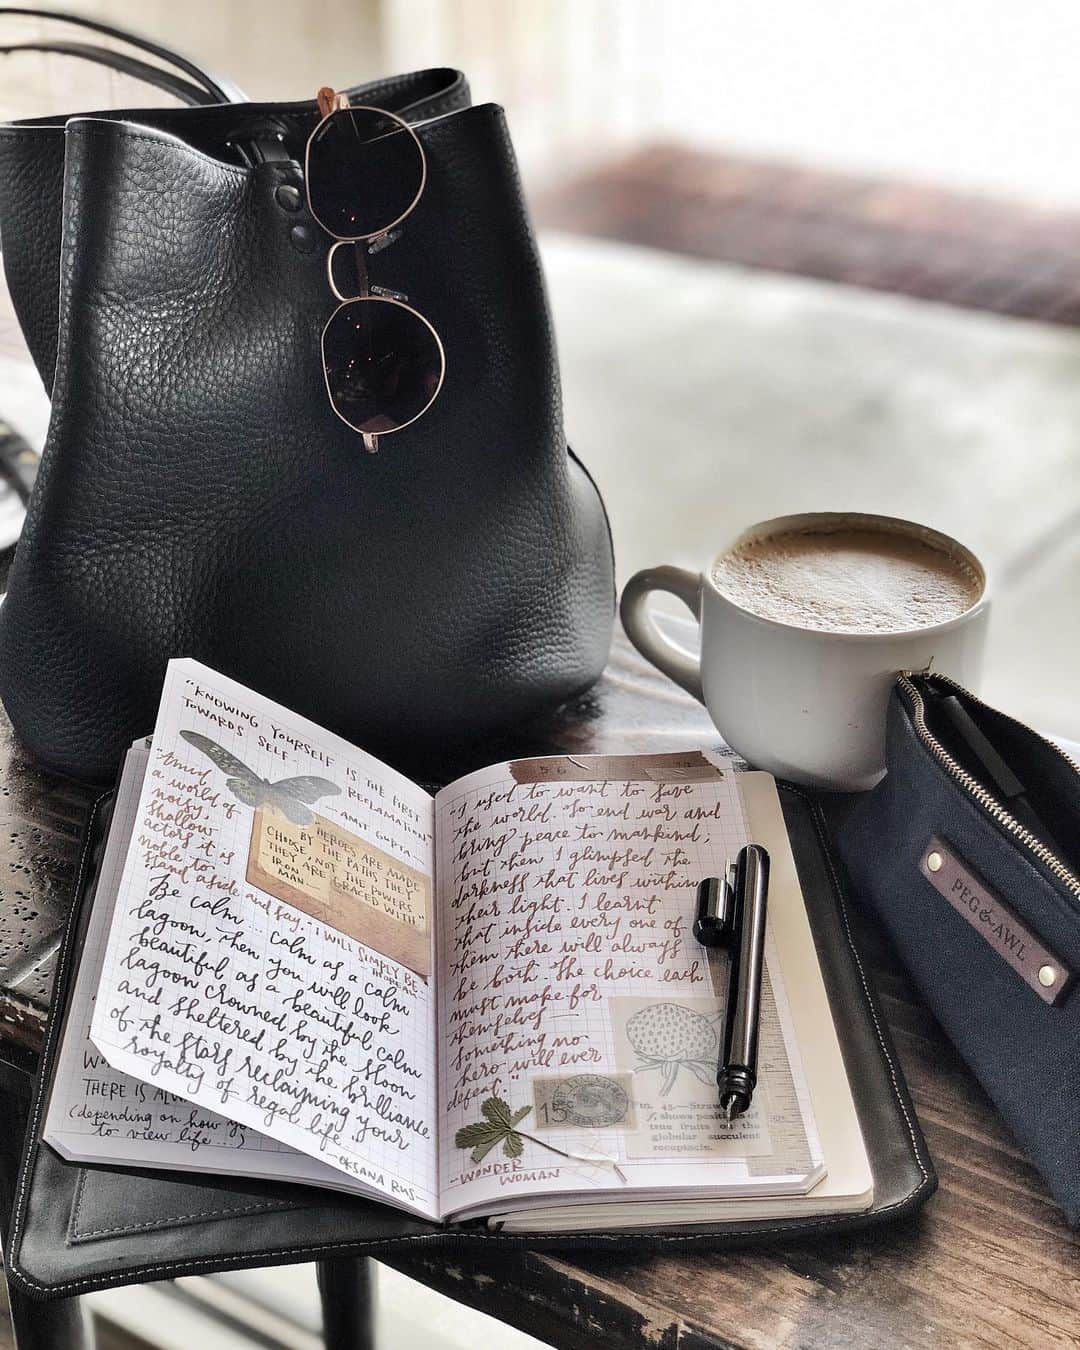 "KNOWING YOURSELF IS THE FIRST
TOWARDS SELF-
RECLAMATION"
-AMIT GUPTA-
"Amid
a world of
noisy,
shallow
actors it is
noble to
stand aside and say, 'I WILL SIMPLY BE.'
"HEROES ARE MADE
BY THE PATHS THEY
CHOSE, NOT THE POWERS
THEY ARE GRACED WITH"
IRON
MAN-
Be calm... calm as a calm
lagoon, then you will look
beautiful as a beautiful calm
lagoon crowned by the Moon
and sheltered by the brilliance
of the stars reclaiming your
royalty of regal life.
-OKSANA RUS-
THERE IS
(depending on how yo
to view life...)
56
"I used to want to save
the world. To end war and
bring peace to mankind;
but then I glimpsed the
darkness that lives within
their light. I learnt
that inside every one of
them there will always
be both. The choice each
must make for
themselves-
something no
hero will ever
defeat."
-WONDER
WOMAN
15c
Fig. 43.-Straw
shows position of
true fruits on the
globular succulent
receptacle.
PEG & AWL